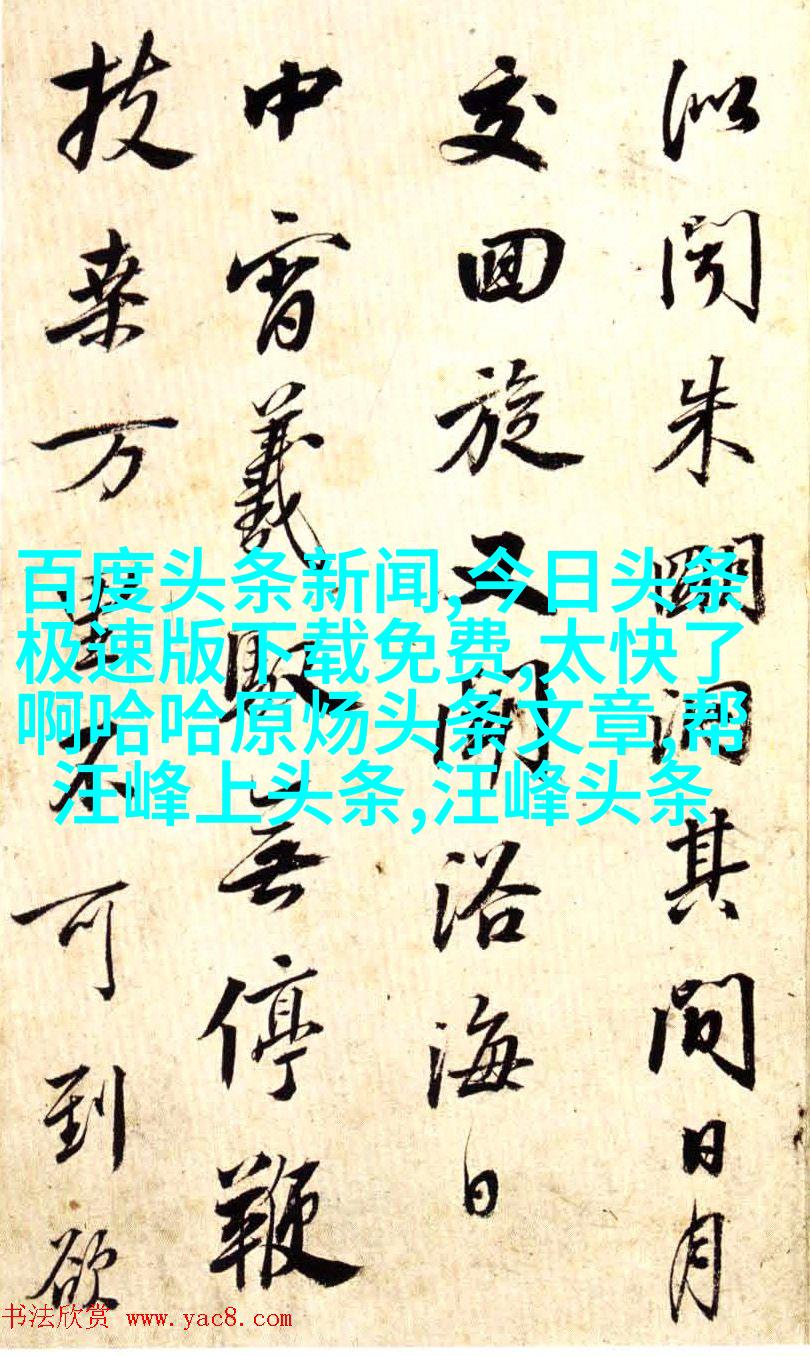 朱其間日月
交回旋浴海日
中宵羲馭無停鞭
扶桑万里不可到欲
百度头条新闻,今日头条
极速版下载免费,太快了
啊哈哈原炀头条文章,帮
汪峰上头条,汪峰头条
书法欣赏 www.yac8.com